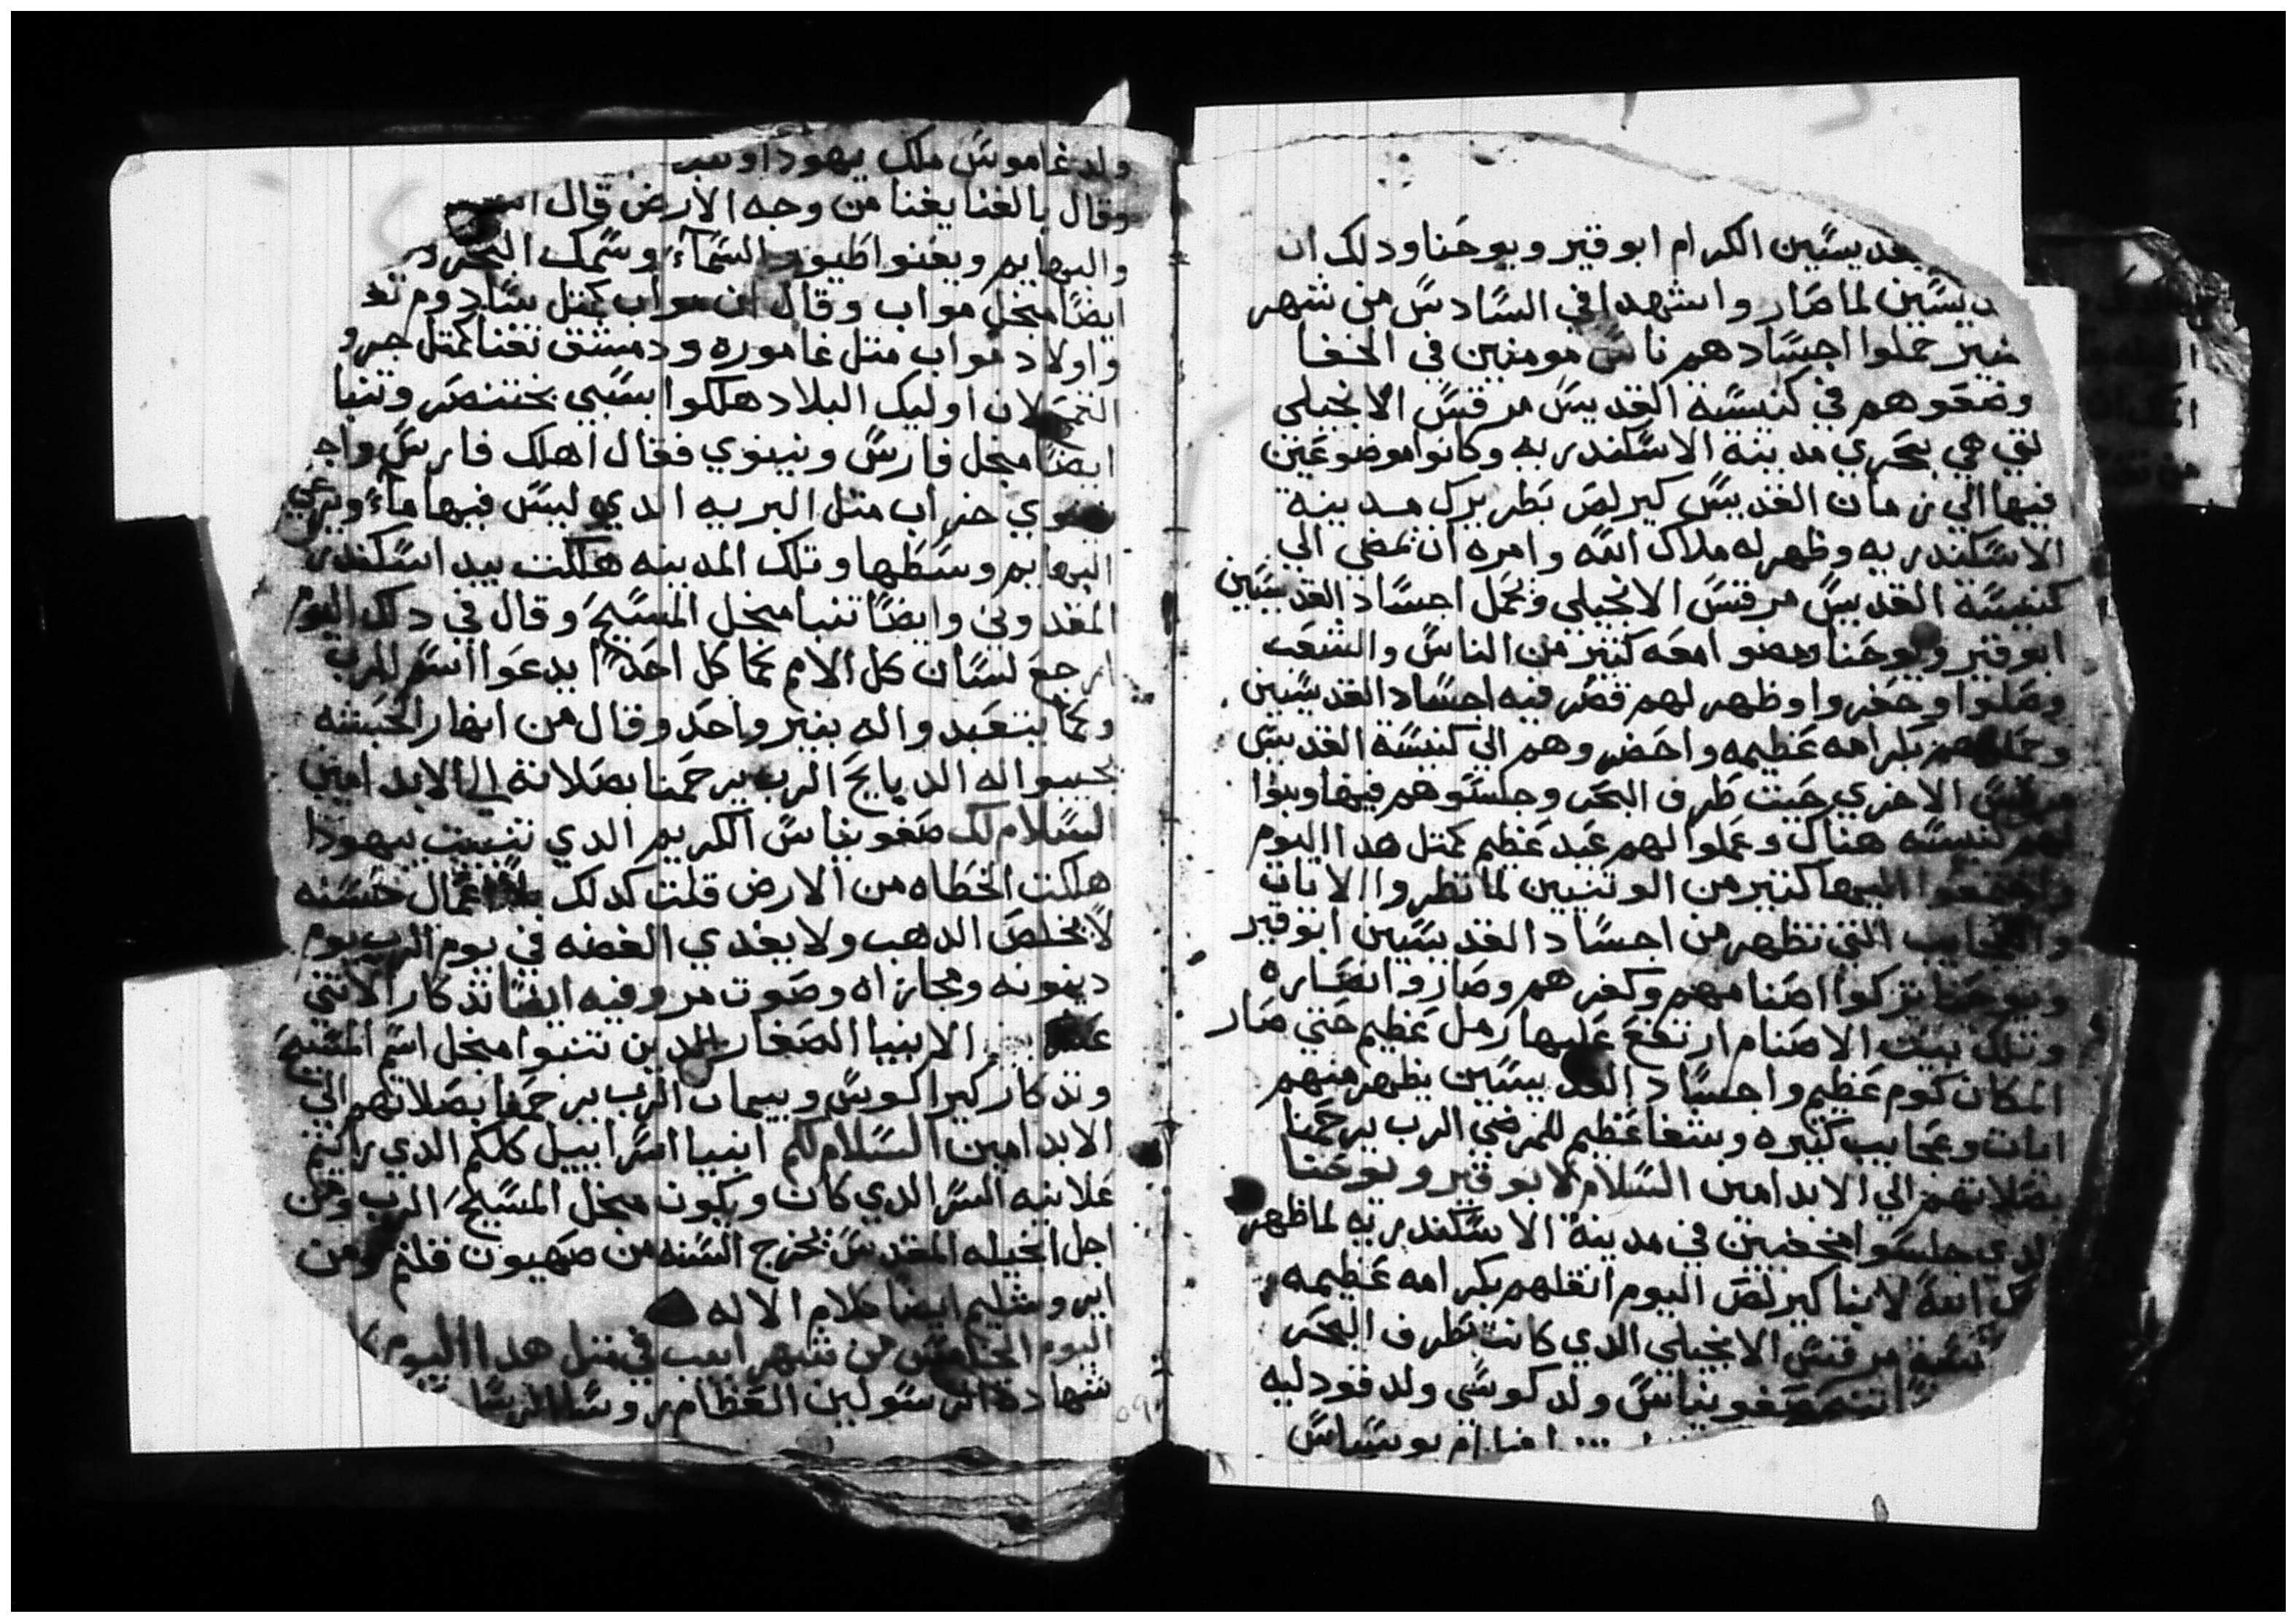 القديسين الكرام ابو قير ويوحنا ودلك ان
القديسين لما صار واشهدا في السادس من شهر
حملوا اجساد هم ناس مومنين في الخفا
وضعوهم في كنيسة القديس مرقس الانجيلي
التي هي بحري مدينه الاسكندريه وكانوا موضوعين
فيها الي زمان القديس كيرلص بطريرك مدينة
الاسكندريه وظهر له ملاك الله وامره ان تمضي الي
كنيسه القديس مرقس الانجيلي وتحمل اجساد القديسين
ابو قير ويوحنا ومضوا معه كتير من الناس والشعب
وصلوا وحفروا وظهر لهم قصر فيه اجساد القديسين
وحملوهم بكرامه عظيمه واحضروهم الي كنيسه القديس
مرقس الاخري حيت طرف البحر وجلسوهم فيها وبنوا
لهم كنيسه هناك وعملوا لهم عيد عظيم كمتل هدا اليوم
واجتمعوا اليها كتير من الوتنيين لما نظروا الايات
والعجايب التي تظهر من اجساد القديسين ابو قير
ويوحنا تركوا اصنامهم وكفرهم وصاروا نصاره
وتلك بيت الاصنام ارتفع عليها رمل عظيم حتي صار
المكان كوم عظيم واجساد القديسين يظهر منهم
ايات وعجايب كتيره وشفا عظيم للمرضي الرب يرحمنا
بصلاتهم الي الابد امين السلام لابو قير ويوحنا
الدي جلسوا مخفيين في مدينة الاسكندريه لما ظهر
ملاك الله لابنا كيرلص اليوم انقلهم بكرامه عظيمه
كنيسة مرقس الانجيلي الدي كانت بطرف البحر
صفونياس ولد كوسي ولد قودليه
يوسياس
ولد غاموس ملك يهودا
وقال بالفنا يفنا من وجه الارض قال
والبهايم ويفنوا طيور السماء وسمك البحر
ايضا مبخل مواب وقال ان مواب كمتل سادوم
واولاد مواب متل غاموره ودمشق تفنا كمتل
لان اوليك البلاد هلكوا بسبي بختنصر وتنبا
ايضا مبخل فارس ونينوي فقال اهلك فارس
نينوي خراب متل البريه الدي ليس فيها ماء وترعي
البهايم وسطها وتلك المدينه هلكت بيد اسكندر
المقدوني وايضا تنبا مبخل المسيح وقال في دلك اليوم
ارجع لسان كل الامم كما كل احدا يدعوا اسم الرب
وكما يتعبد واله بنير واحد وقال من انهار الحبشه
يجيبوا له الدبايح الرب يرحمنا بصلاته الي الابد امين
السلام لك صفونياس الكريم الدي تنبيت بيهودا
هلكت الخطاه من الارض قلت كدلك بلا اعمال حسنه
لا يخلص الدهب ولا يفدي الفضه في يوم الرب يوم
دينونه ومجازاه وصوت مر وفيه ايضا تدكار الاتني
عشر الانبيا الصغار الدين تنبوا مبخل اسم المسيح
وتدكار كيراكوس وبيمان الرب يرحمنا بصلاتهم الي
الابد امين السلام لكم انبيا اسراييل كلكم الدي رايتم
علانيه السر الدي كان ويكون مبخل المسيح الرب ومن
اجل انجيله المقدس تخرج السنه من صهيون قلتم ومن
ايروشليم ايضا كلام الاله
اليوم الخامس من شهر ابيب في متل هدا اليوم
شهادة الرسولين العظام روسا الرسل